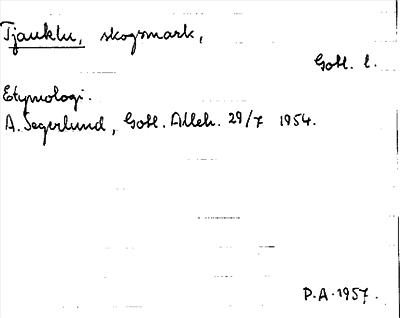 Tjauklu, skogsmark,
Gotl. l.
Etymologi.
A. Segerlund, Gotl. Alleh. 29/7 1954.
P.A. 1957.